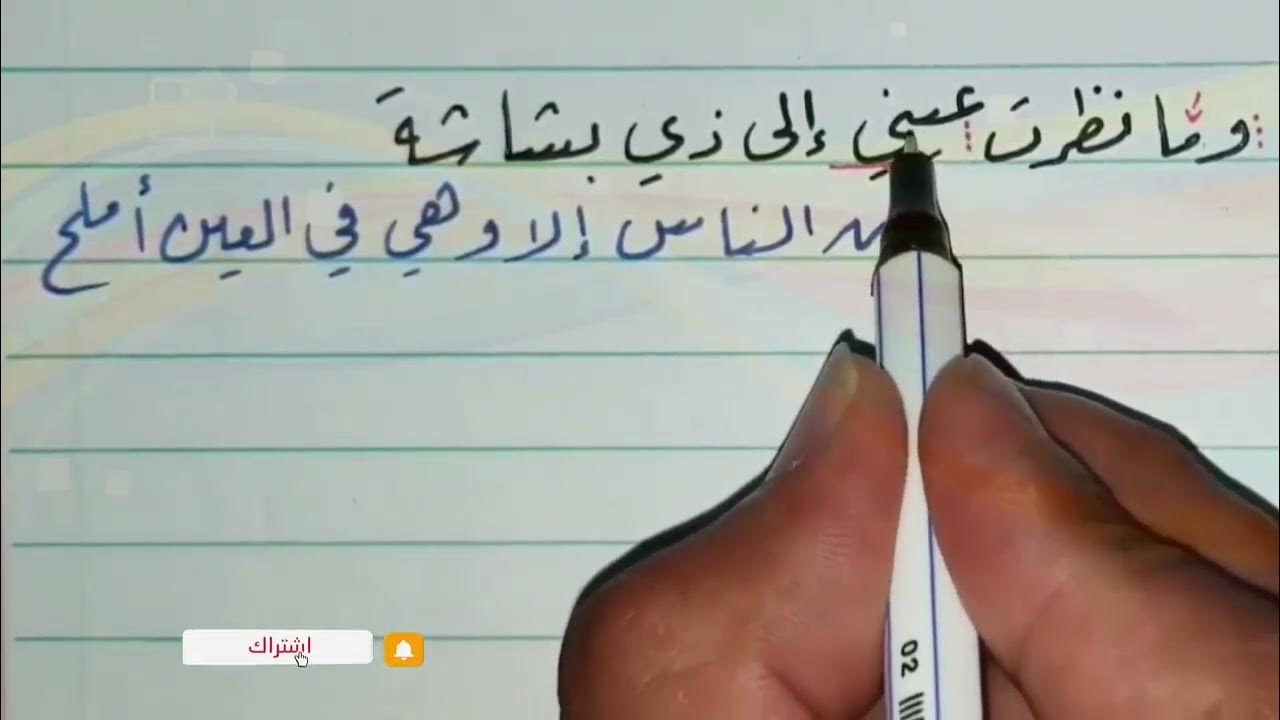 وما نظرت عيني إلى ذي بشاشة
الناس إلا وهي في العين أملح
اشتراك
02